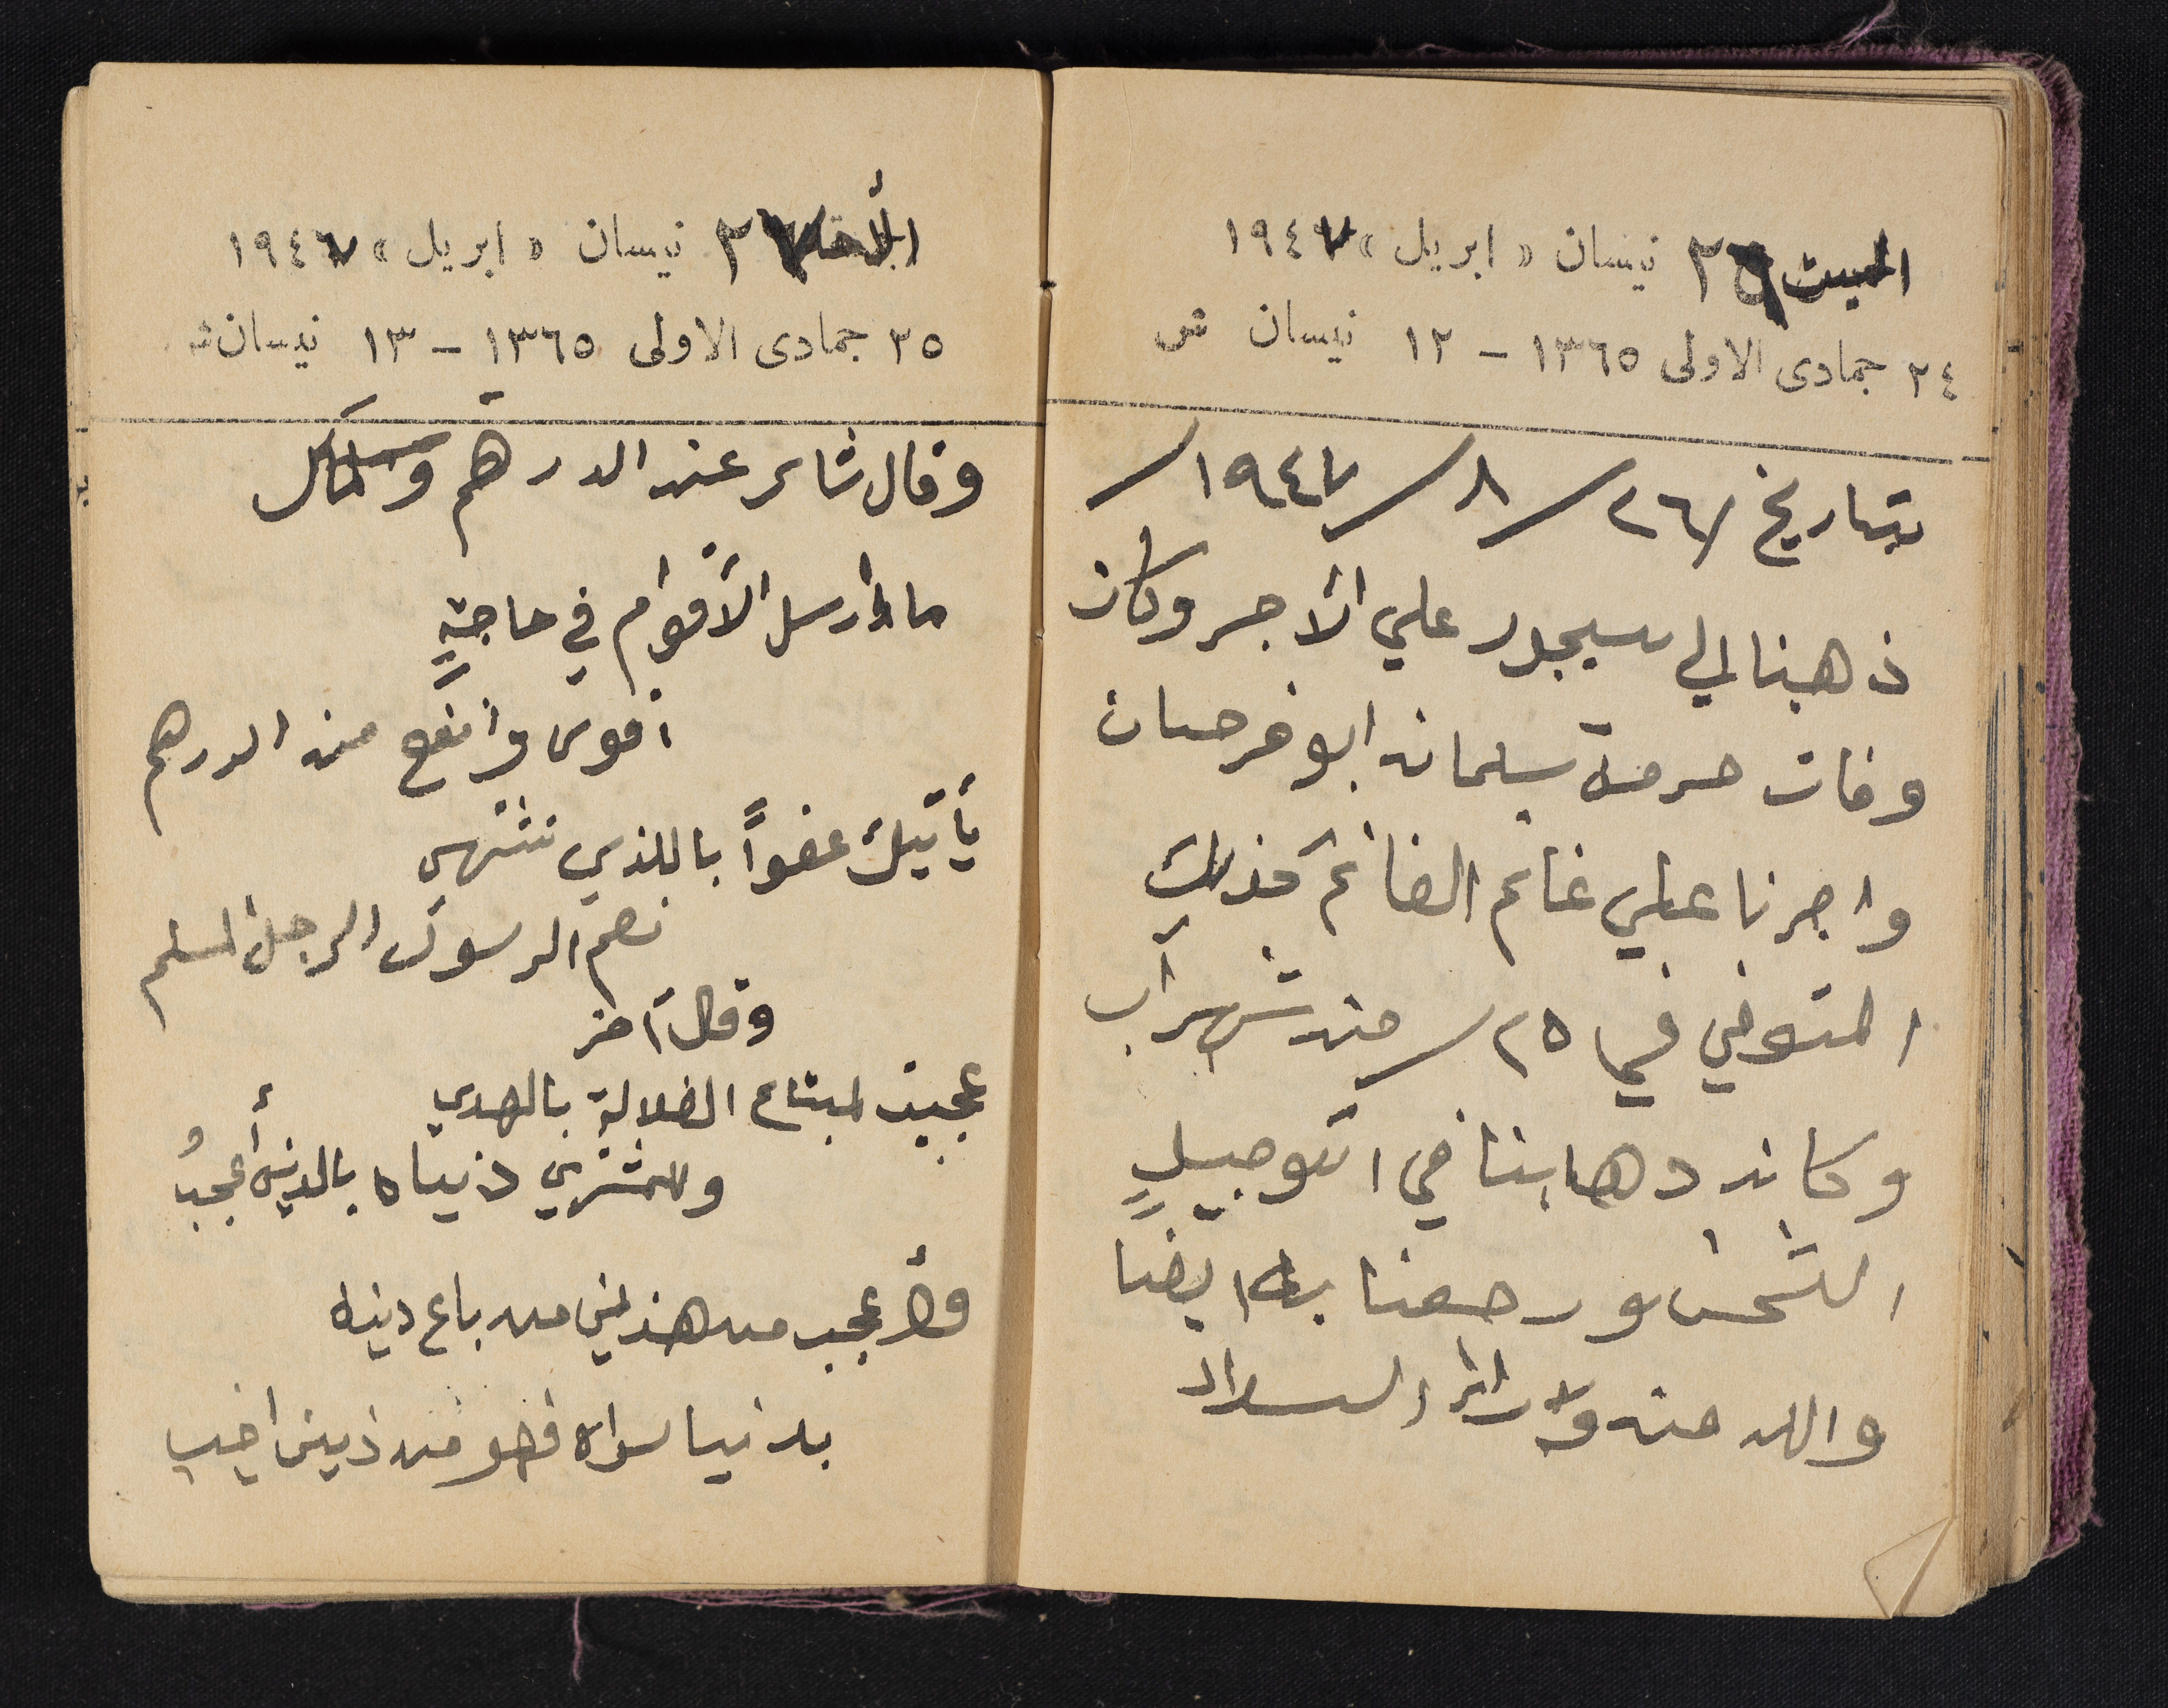 السبت ٢٦ نيسان « ابريل » ١٩٤٧
٢٤ جمادى الاولى ١٣٦٥ – ١٢ نيسان ش
بتاريخ /٢٦/٨/١٩٤٧/
ذهبنا الي سيجور علي الأجر وكان
وفات حرمة سلمان ابو فرحان
واجرنا علي غانم الغانم كذلك
المتوفي في ٢٥/ من شهر آب
وكان دهابنا في اتموبيلٍ
الشمس ورجعنا به ايضا
والله منه
الأحد ٢٧ نيسان « ابريل » ١٩٤٧
٢٥ جمادى الاولى ١٣٦٥ – ١٣ نيسان ش
وقال شاعر عن الدرهم
ما ارسل الأقوام في حاجةٍ
اقوى وانفع من الدرهم
يأتيك عفواً باللذي تشتهي
نعم الرسول الرجل المسلم
وقال آخر
عجبت لمبتاع الضلالة بالهدي
وللمشتري دنياه بالدين أعجبُ
وأعجب من هذين من باع دينه
بدنيا سواه فهو من ذين اخيب